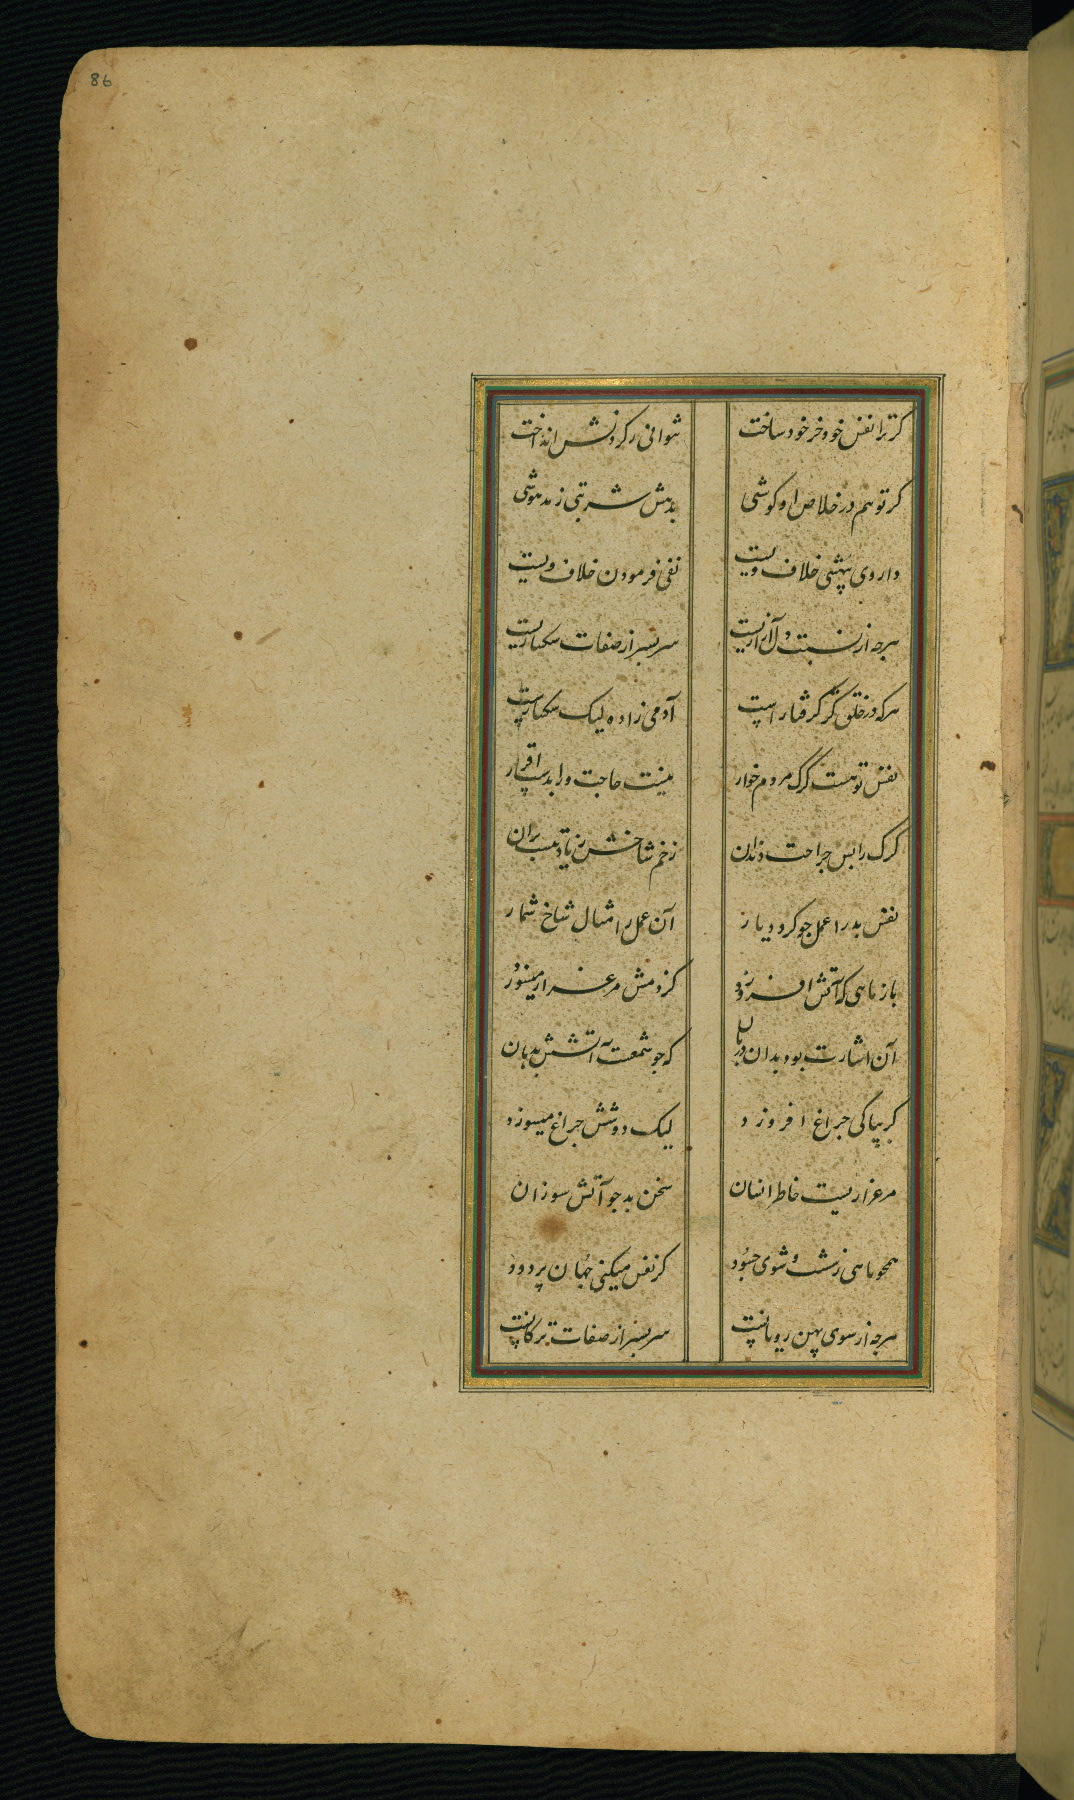 86
کر ترا نفس خود خر خود ساخت
نتوانی ز کردنش انداخت
کر تو هم در خلاص او کوشی
بدهش شربتی ز مدهوشی
داروی بیهشی خلاف ویست
نفی فرمودن خلاف ویست
هرچه از نسبت دل آزاریست
سر بسر از صفات سکساریست
هرکه در خلق کر کرفتارست
آدمی زاده لیک سکسارست
نفس تو هست کرک مردم خوار
نیست حاجت ورا بدست افزار
کرک را بس جراحت دندان
زخم شاخش زیادتیست بران
نفس بد را عمل جو کردد یار
آن عمل را مثال شاخ شمار
باز ماهی که آتش افروزد
کز دمش مرغزار میسوزد
آن اشارت بود بدان
که جو شمعت آتشش بدهان
کر بپاکی جراغ افروزد
لیک دودش جراغ میسوزد
مرغزاریست خاطر انسان
سخن بد جو آتش سوزان
همجو ماهی ز شست و شوی جه بود
کر نفس میکنی جهان پر دود
هرجه از سوی پهن رویانست
سر بسر از صفات ترکانست